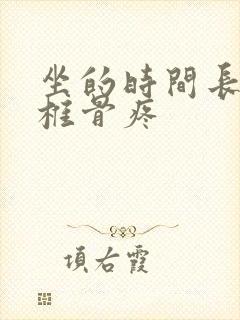 坐的時間長
椎骨疼
項右霞